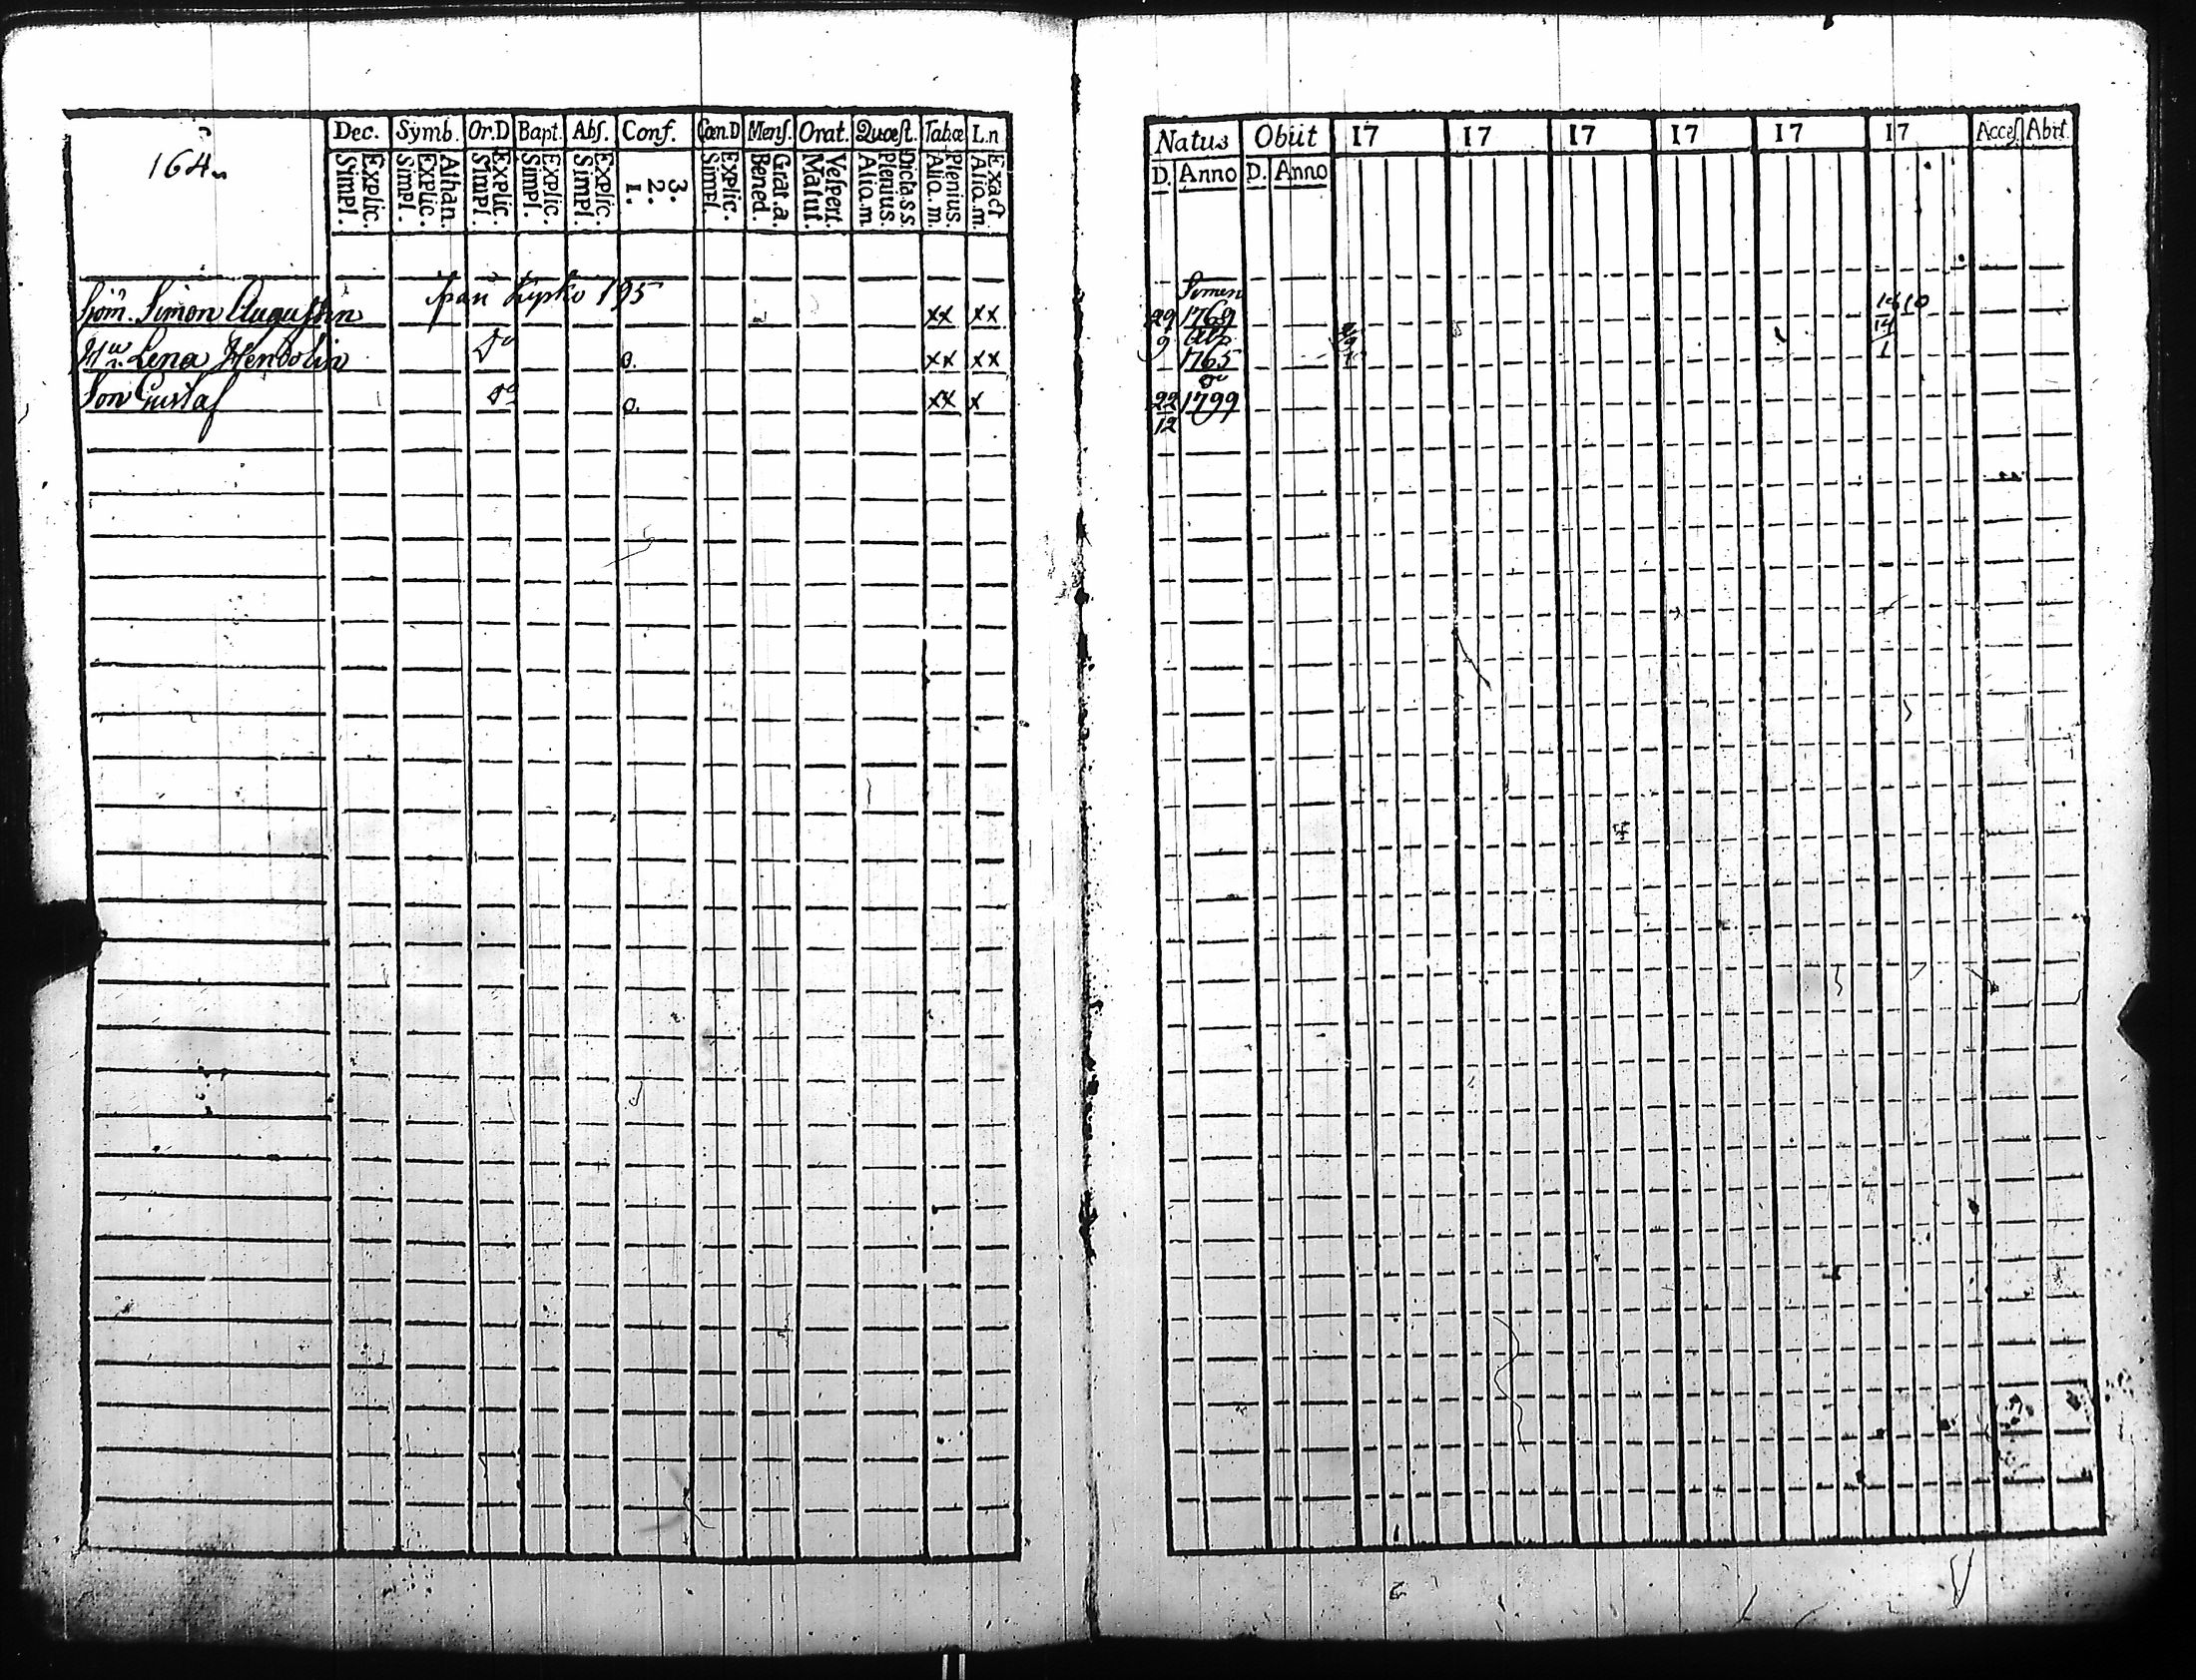 164
Dec. Symb. Or.D Bapt. Abſ. Conf. Cœn.D Menſ. Orat. Quœſt. Tabæ L.n
Explic. Simpl. Athan. Explic. Simpl. Explic. Simpl. Explic. Simpl. Explic. Simpl. 3. 2. 1. Explic. Simpl. Grat.a. Bened. Veſpert. Matut. Dicta.s.s. Plenius. Aliq.m Plenius. Aliq.m. Exact Aliq.m.
Simon Augustin 195 xx xx
Hu. Lena Hendolin Do o. xx xx
Son Gustaf Do o. xx x
Natus Obiit 17 17 17 17 17 17 Acceſ Abit
D. Anno D. Anno
29 1769 10
9 1765
22 1799
12